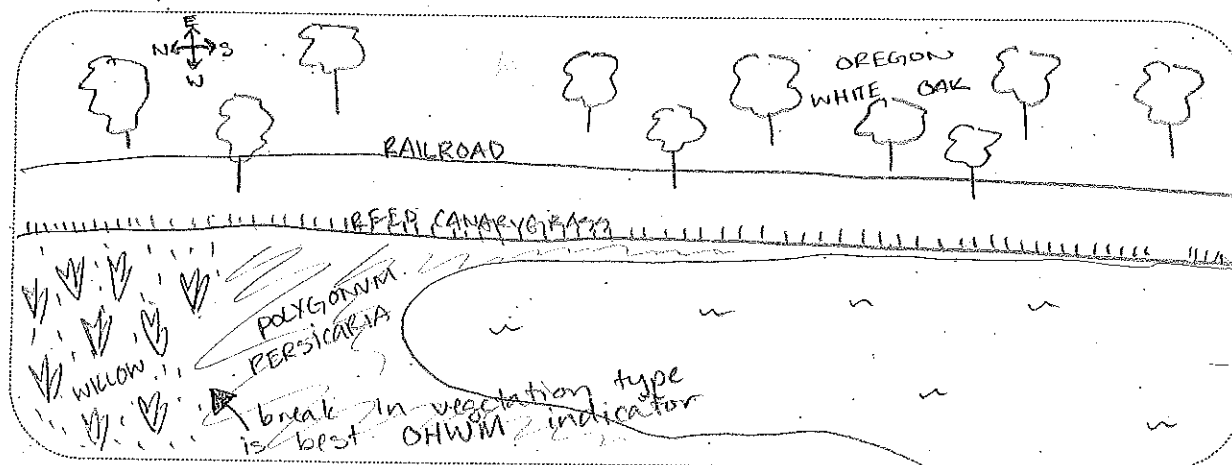 E
N S
W
OREGON
WHITE OAK
RAILROAD
REED CANARYGRASS
POLYGONUM
PERSICARIA
WILLOW
break in vegetation type
is best OHWM indicator